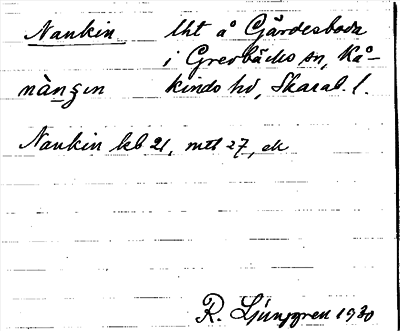 Nankin lht å Gärdesboda
i Grevbäcks sn, Kå-
nàŋgın kinds hd, Skarab. l.
Nankin kb 21, mtl 27, ek
R. Ljunggren 1930